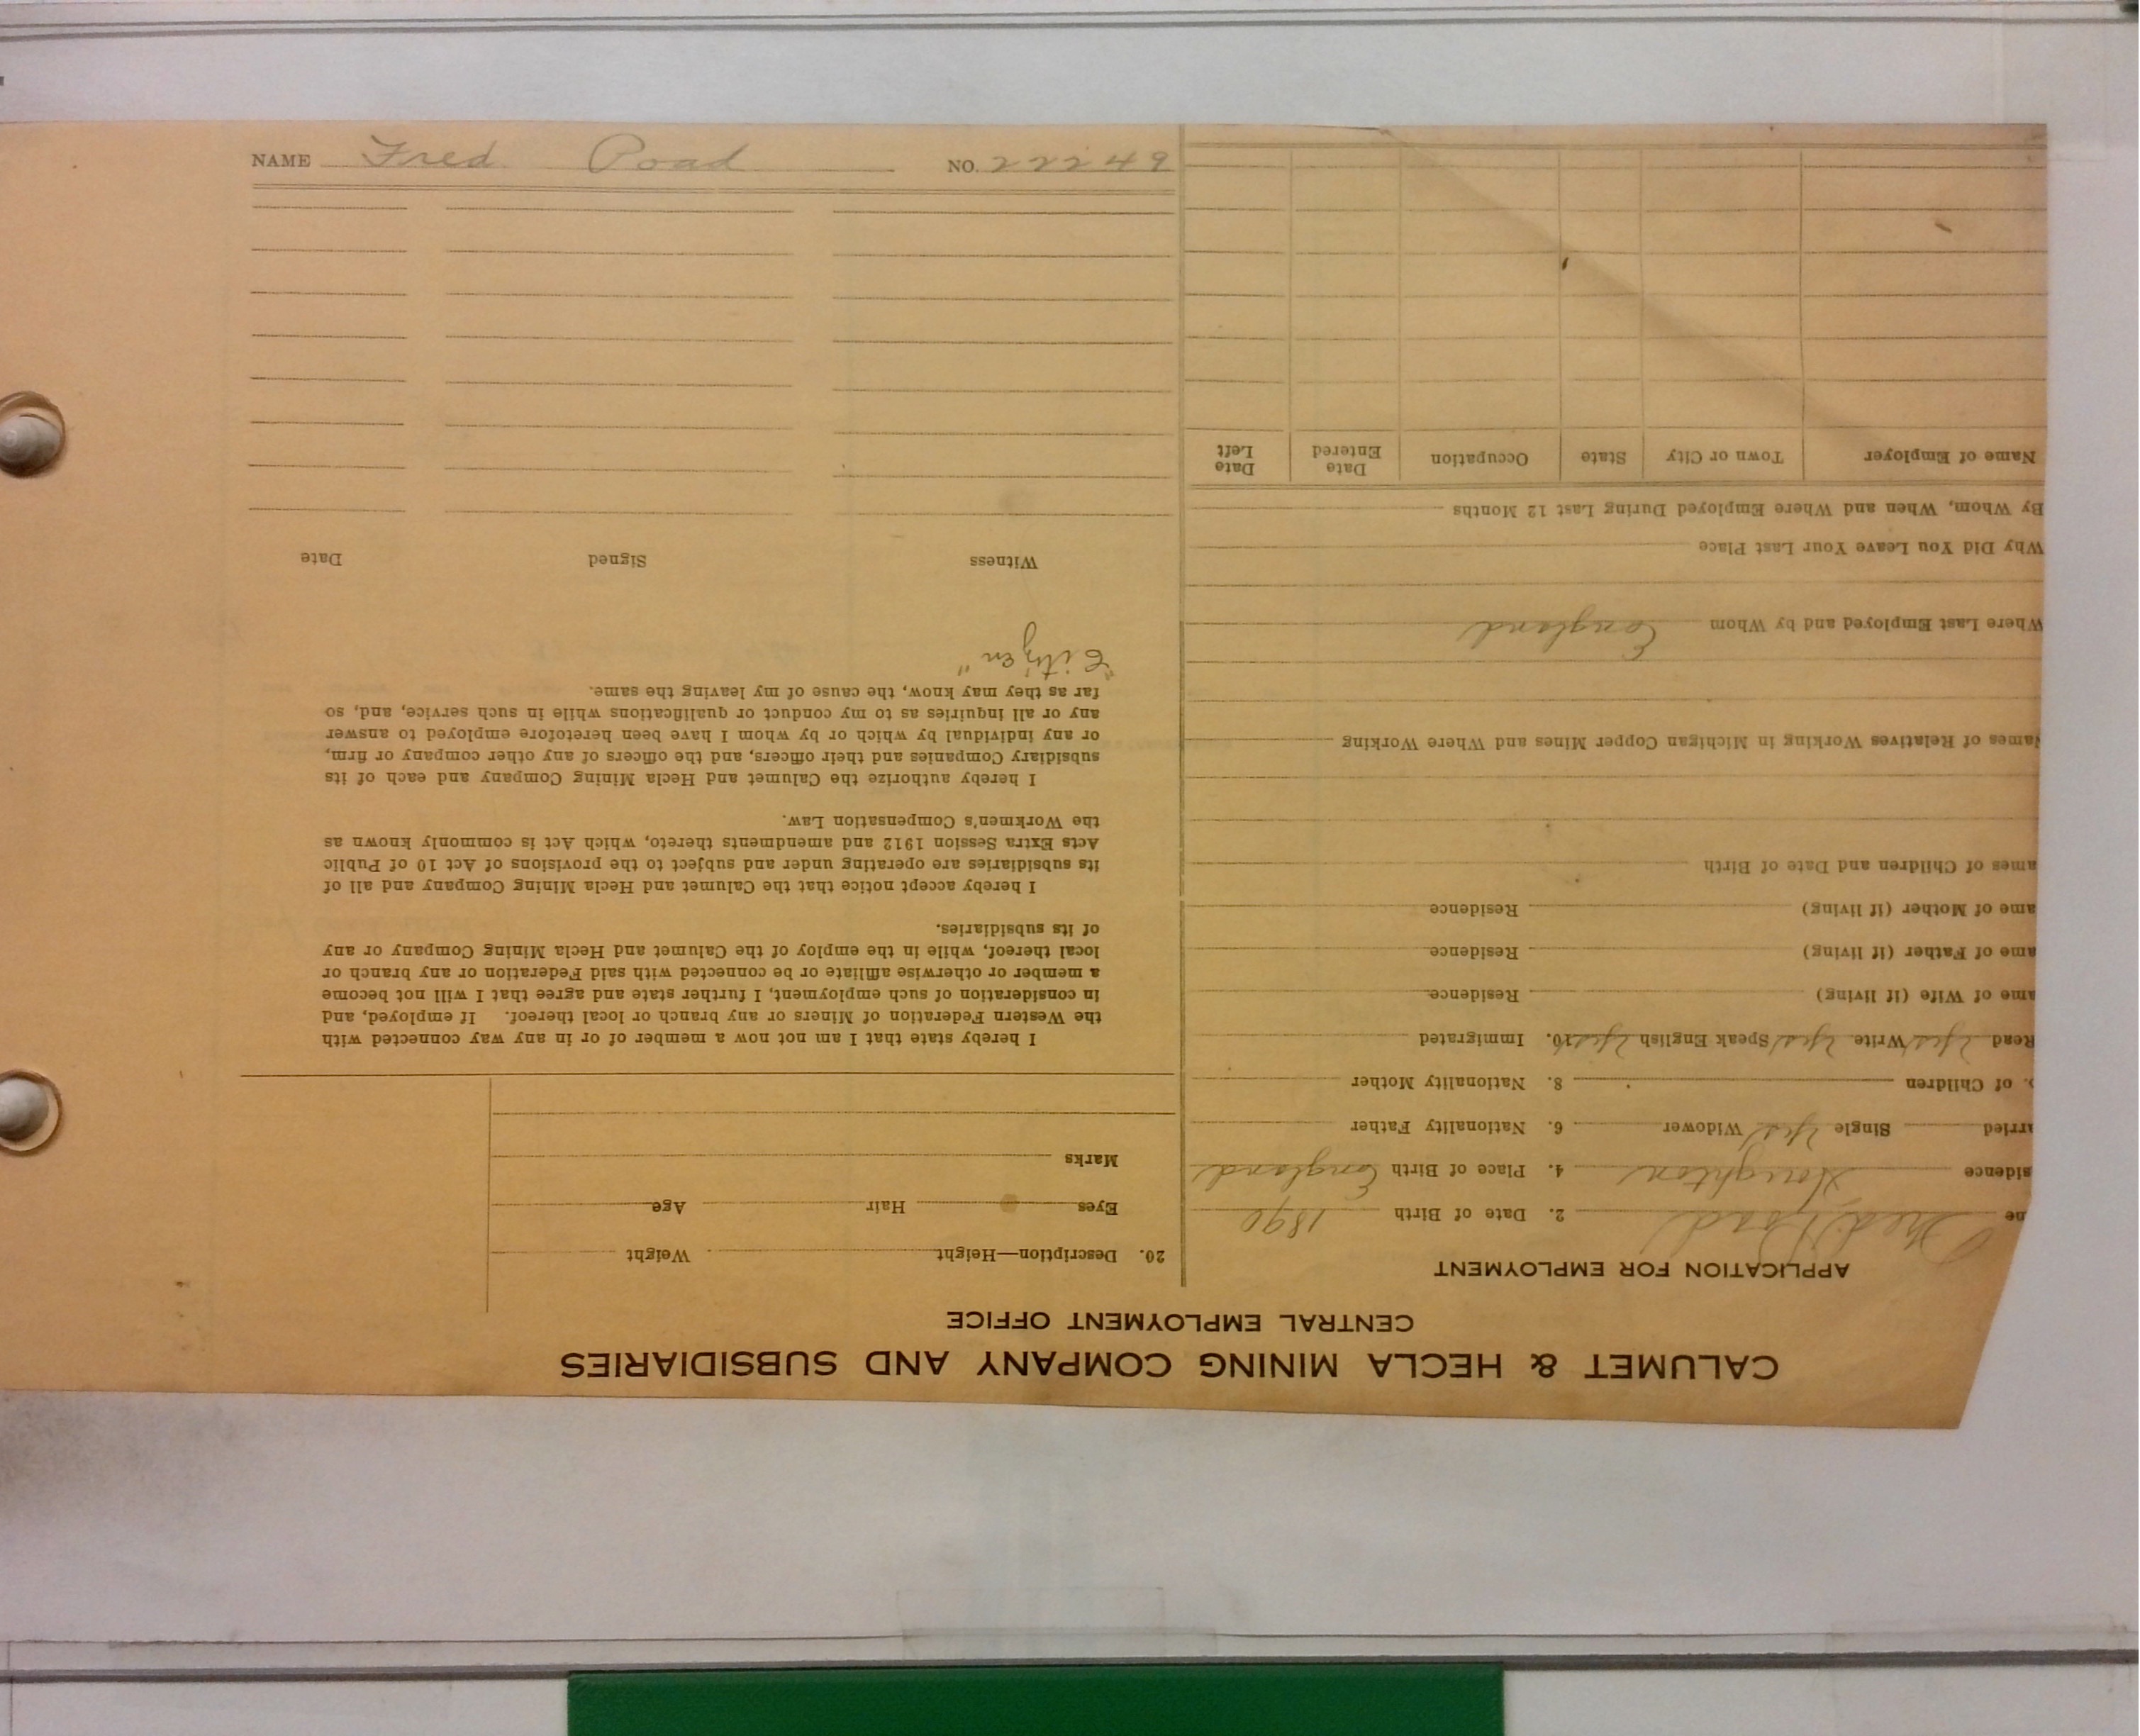 CALUMET & HECLA MINING COMPANY AND SUBSIDIARIES
CENTRAL EMPLOYMENT OFFICE
APPLICATION FOR EMPLOYMENT
me Fred Poad 2. Date of Birth 1890
sidence Houghton 4. Place of Birth England
arried Single Yes Widower 6. Nationality Father
o. of Children 8. Nationality Mother
Read Yes Write Yes Speak English Yes 10. Immigrated
ame of Wife (if living) Residence
ame of Father (if living) Residence
ame of Mother (if living) Residence
ames of Children and Date of Birth
Names of Relatives Working in Michigan Copper Mines and Where Working
Where Last Employed and by Whom England
Why Did You Leave Your Last Place
By Whom, When and Where Employed During Last 12 Months
Name of Employer Town or City State Occupation Date Entered Date Left
20. Description—Height Weight
Eyes Hair Age
Marks
I hereby state that I am not now a member of or in any way connected with
the Western Federation of Miners or any branch or local thereof. If employed, and
in consideration of such employment, I further state and agree that I will not become
a member or otherwise affiliate or be connected with said Federation or any branch or
local thereof, while in the employ of the Calumet and Hecla Mining Company or any
of its subsidiaries.
I hereby accept notice that the Calumet and Hecla Mining Company and all of
its subsidiaries are operating under and subject to the provisions of Act 10 of Public
Acts Extra Session 1912 and amendments thereto, which Act is commonly known as
the Workmen's Compensation Law.
I hereby authorize the Calumet and Hecla Mining Company and each of its
subsidiary Companies and their officers, and the officers of any other company or firm,
or any individual by which or by whom I have been heretofore employed to answer
any or all inquiries as to my conduct or qualifications while in such service, and, so
far as they may know, the cause of my leaving the same.
"Citizen"
Witness Signed Date
NAME Fred Poad NO. 22249